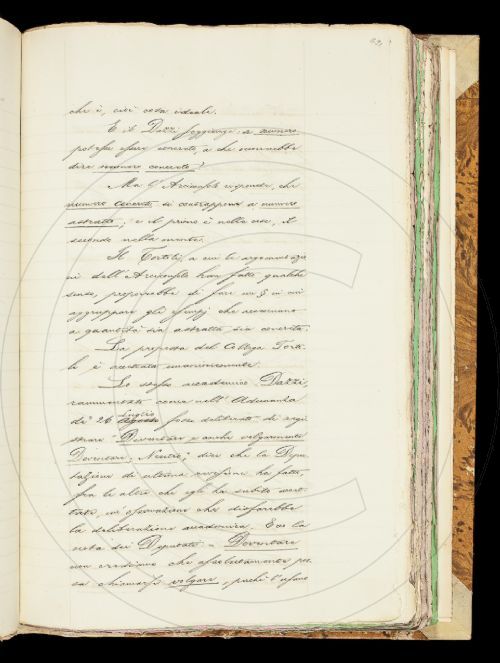 che è, cioè cosa ideale.
E il Dazzi soggiunge: se numero
potesse essere concreto, a che occorrerebbe
dire numero concreto?
Ma l'Arciconsolo risponde, che
numero concreto si contrappone a numero
astratto; e il primo è nelle cose, il
secondo nella mente.
Il Tortoli, a cui le argomentazio
ni dell'Arciconsolo han fatto qualche
senso, proporrebbe di fare un § in cui
aggruppare gli esempj che accennano
a quantità sia astratta sia concreta.
La proposta del Collega Torto
li è accettata unanimemente.
Lo stesso accademico Dazzi,
rammentato come nell'Adunanza
de' 26 Luglio fosse deliberato di regi
strare "Doventare e anche volgarmente
Deventare, Neutro", dice che la Depu
tazione di ultima revisione ha fatto,
fra le altre che egli ha subito accet
tate, un'osservazione che disfarebbe
la deliberazione accademica. Ecco la
nota dei Deputati: "Doventare
non crediamo che assolutamente pos
sa chiamarsi volgare, perchè l'usano